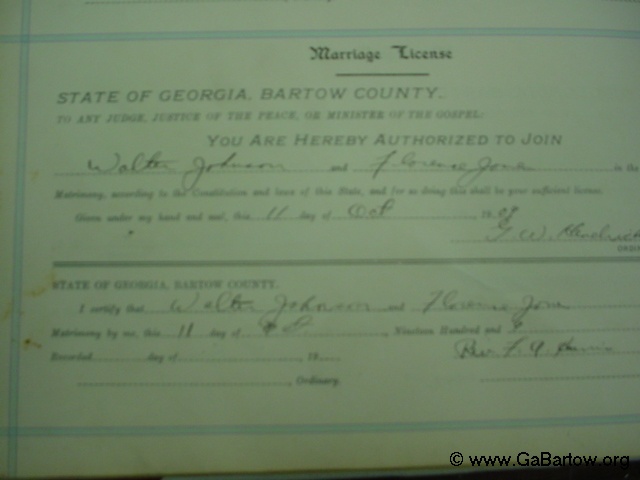 Marriage License
STATE OF GEORGIA, BARTOW COUNTY.
TO ANY JUDGE, JUSTICE OF THE PEACE, OR MINISTER OF THE GOSPEL:
YOU ARE HEREBY AUTHORIZED TO JOIN
Walter Johnson and Florence Jones in the
Matrimony, according to the Constitution and laws of this State, and for so doing this shall be your sufficient license.
Given under my hand and seal, this 11 day of Oct, 1909
G. W. Hendricks
STATE OF GEORGIA, BARTOW COUNTY.
I certify that Walter Johnson and Florence Jones
Matrimony by me, this 11 day of Oct, Nineteen Hundred and 9
Rev. F. A.
Recorded day of, 19
Ordinary.
© www.GaBartow.org